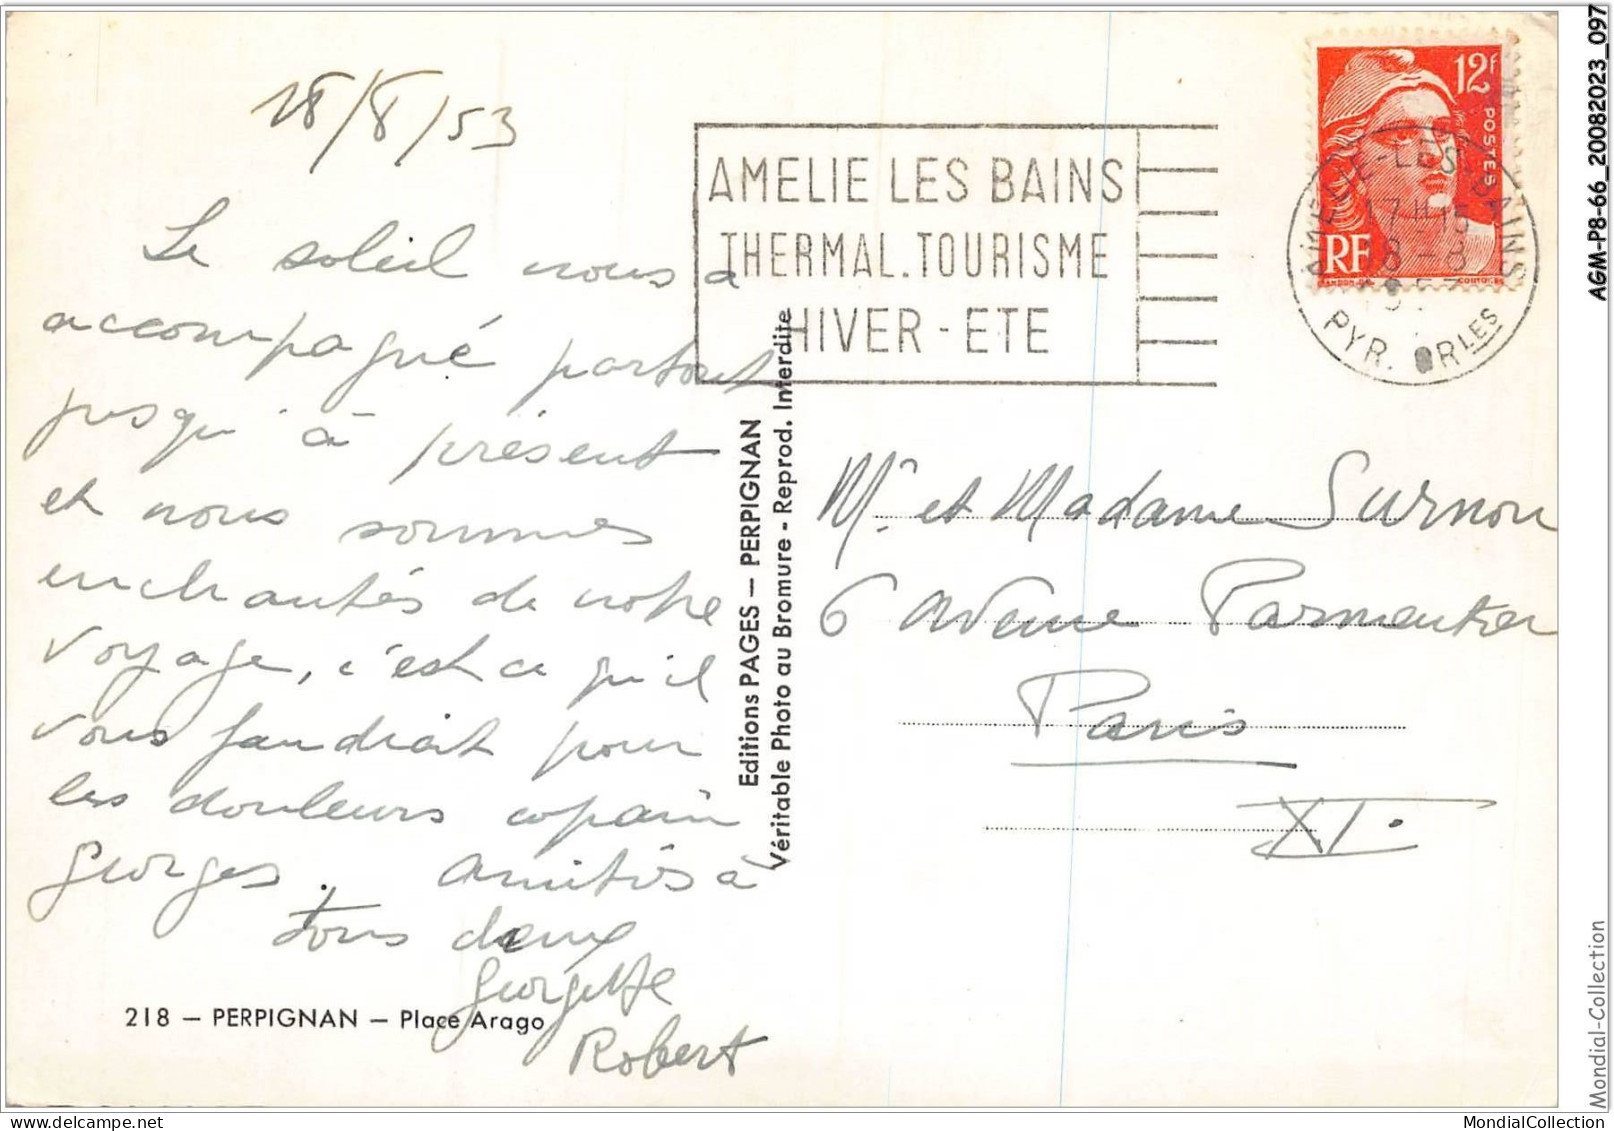 18/8/53
Le soleil nous a
accompagné partout
jusqu'à présent
et nous sommes
enchantés de notre
voyage, c'est ce qu'il
vous faudrait pour
les douleurs copain
Georges. Amitiés à
tous deux
Georgette
Robert
218 — PERPIGNAN — Place Arago
Editions PAGES — PERPIGNAN
Véritable Photo au Bromure - Reprod. Interdite
AMELIE LES BAINS
THERMAL. TOURISME
HIVER - ETE
12F
POSTES
RF
GANDON
AMELIE-LES-BAINS
17H15
18-8
PYR. ORLES
Mr. et Madame Surnon
6 avenue Parmentier
Paris
XI.
AGM-P8-66_20082023_097
Mondial-Collection
MondialCollection